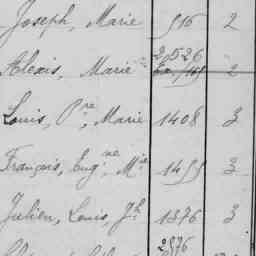 Joseph, Marie 516 2
2526
Alexis, Marie 2
Louis, Pre, Marie 1408 3
François, Eugne, Mie 1455 3
Julien, Louis, Jh 1376 3
2576